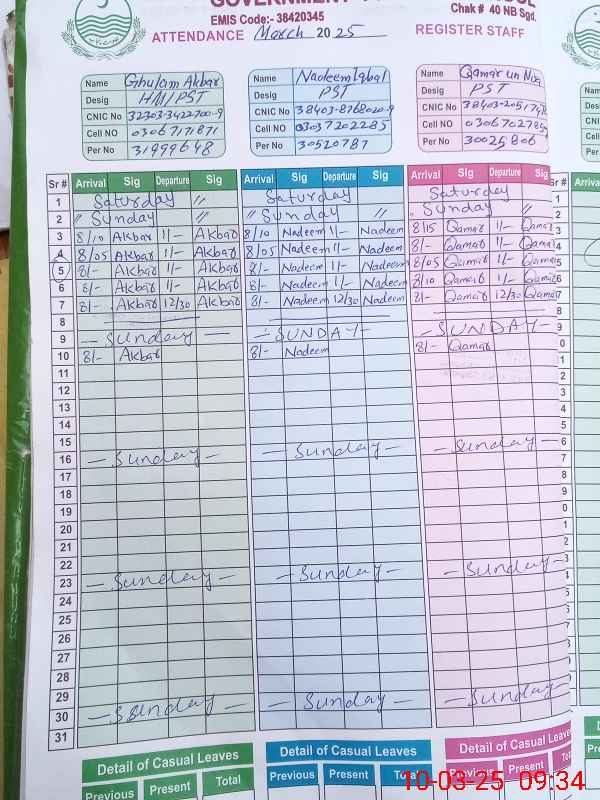 GOVERNMENT
EMIS Code:- 38420345
Chak # 40 NB Sgd.
ATTENDANCE March 2025 REGISTER STAFF
Name Ghulam Akbar
Desig HM/PST
CNIC No 32303-3422700-9
Cell NO 03067171871
Per No 31999648
Name Nadeem Iqbal
Desig PST
CNIC No 38403-8768020-9
Cell NO 03037202285
Per No 30520787
Name Qamar un
Desig PST
CNIC No 38403-20517
Cell NO 030670278
Per No 30025806
Sr # Arrival Sig Departure Sig Arrival Sig Departure Sig Arrival Sig Departure Sig Sr # Arrival
1 Saturday " Saturday Saturday
2 " Sunday " " Sunday " " Sunday "
3 8/10 Akbar 1/- Akbar 8/10 Nadeem 1/- Nadeem 8/15 Qamar 1/- Qamar
4 8/05 Akbar 1/- Akbar 8/05 Nadeem 1/- Nadeem 8/- Qamar 1/- Qamar
5 8/- Akbar 1/- Akbar 8/- Nadeem 1/- Nadeem 8/05 Qamar 1/- Qamar
6 8/- Akbar 1/- Akbar 8/- Nadeem 1/- Nadeem 8/10 Qamar 1/- Qamar
7 8/- Akbar 12/30 Akbar 8/- Nadeem 12/30 Nadeem 8/- Qamar 12/30 Qamar
8
9 - Sunday - - SUNDAY - - SUNDAY -
10 8/- Akbar 8/- Nadeem 8/- Qamar
11
12
13
14
15
16 - Sunday - - Sunday - - Sunday -
17
18
19
20
21
22
23 - Sunday - - Sunday - - Sunday -
24
25
26
27
28
29
30 - Sunday - - Sunday - - Sunday -
31
Detail of Casual Leaves Detail of Casual Leaves Detail of Casual Leaves
Previous Present Total Previous Present Total Previous Present
10-03-25 09:34